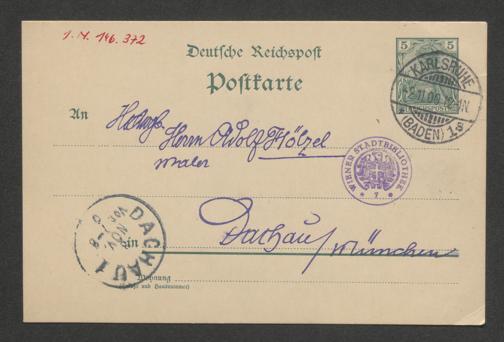 I. N. 146.372
Deutsche Reichspost
Postkarte
5 5
KARLSRUHE
(BADEN)
REICHSPOST
An
Herrn Adolf Hölzel
Maler
WIENER STADTBIBLIOTHEK
* 7 *
DACHAU 1
NOV
7-8
in Dachau / München
Wohnung
(Straße und Hausnummer)